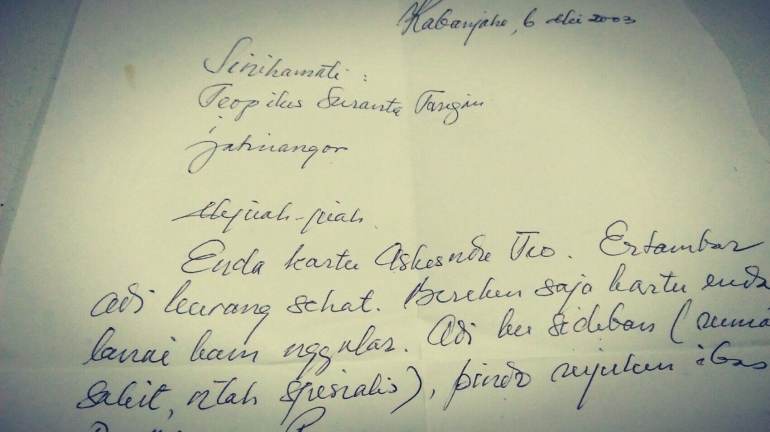 Kabanjahe, 6 Mei 2003
Sinihamati :
Teopilus Suranta Tarigan
jatinangor
Mejuah-juah
Enda kartu Askesndu Teo. Ertambar
adi kurang sehat. Bereken saja kartu enda
lanai kam nggalar. Adi ku sideban (rumah
sakit, ntah spesialis), pindo rujuken ibas